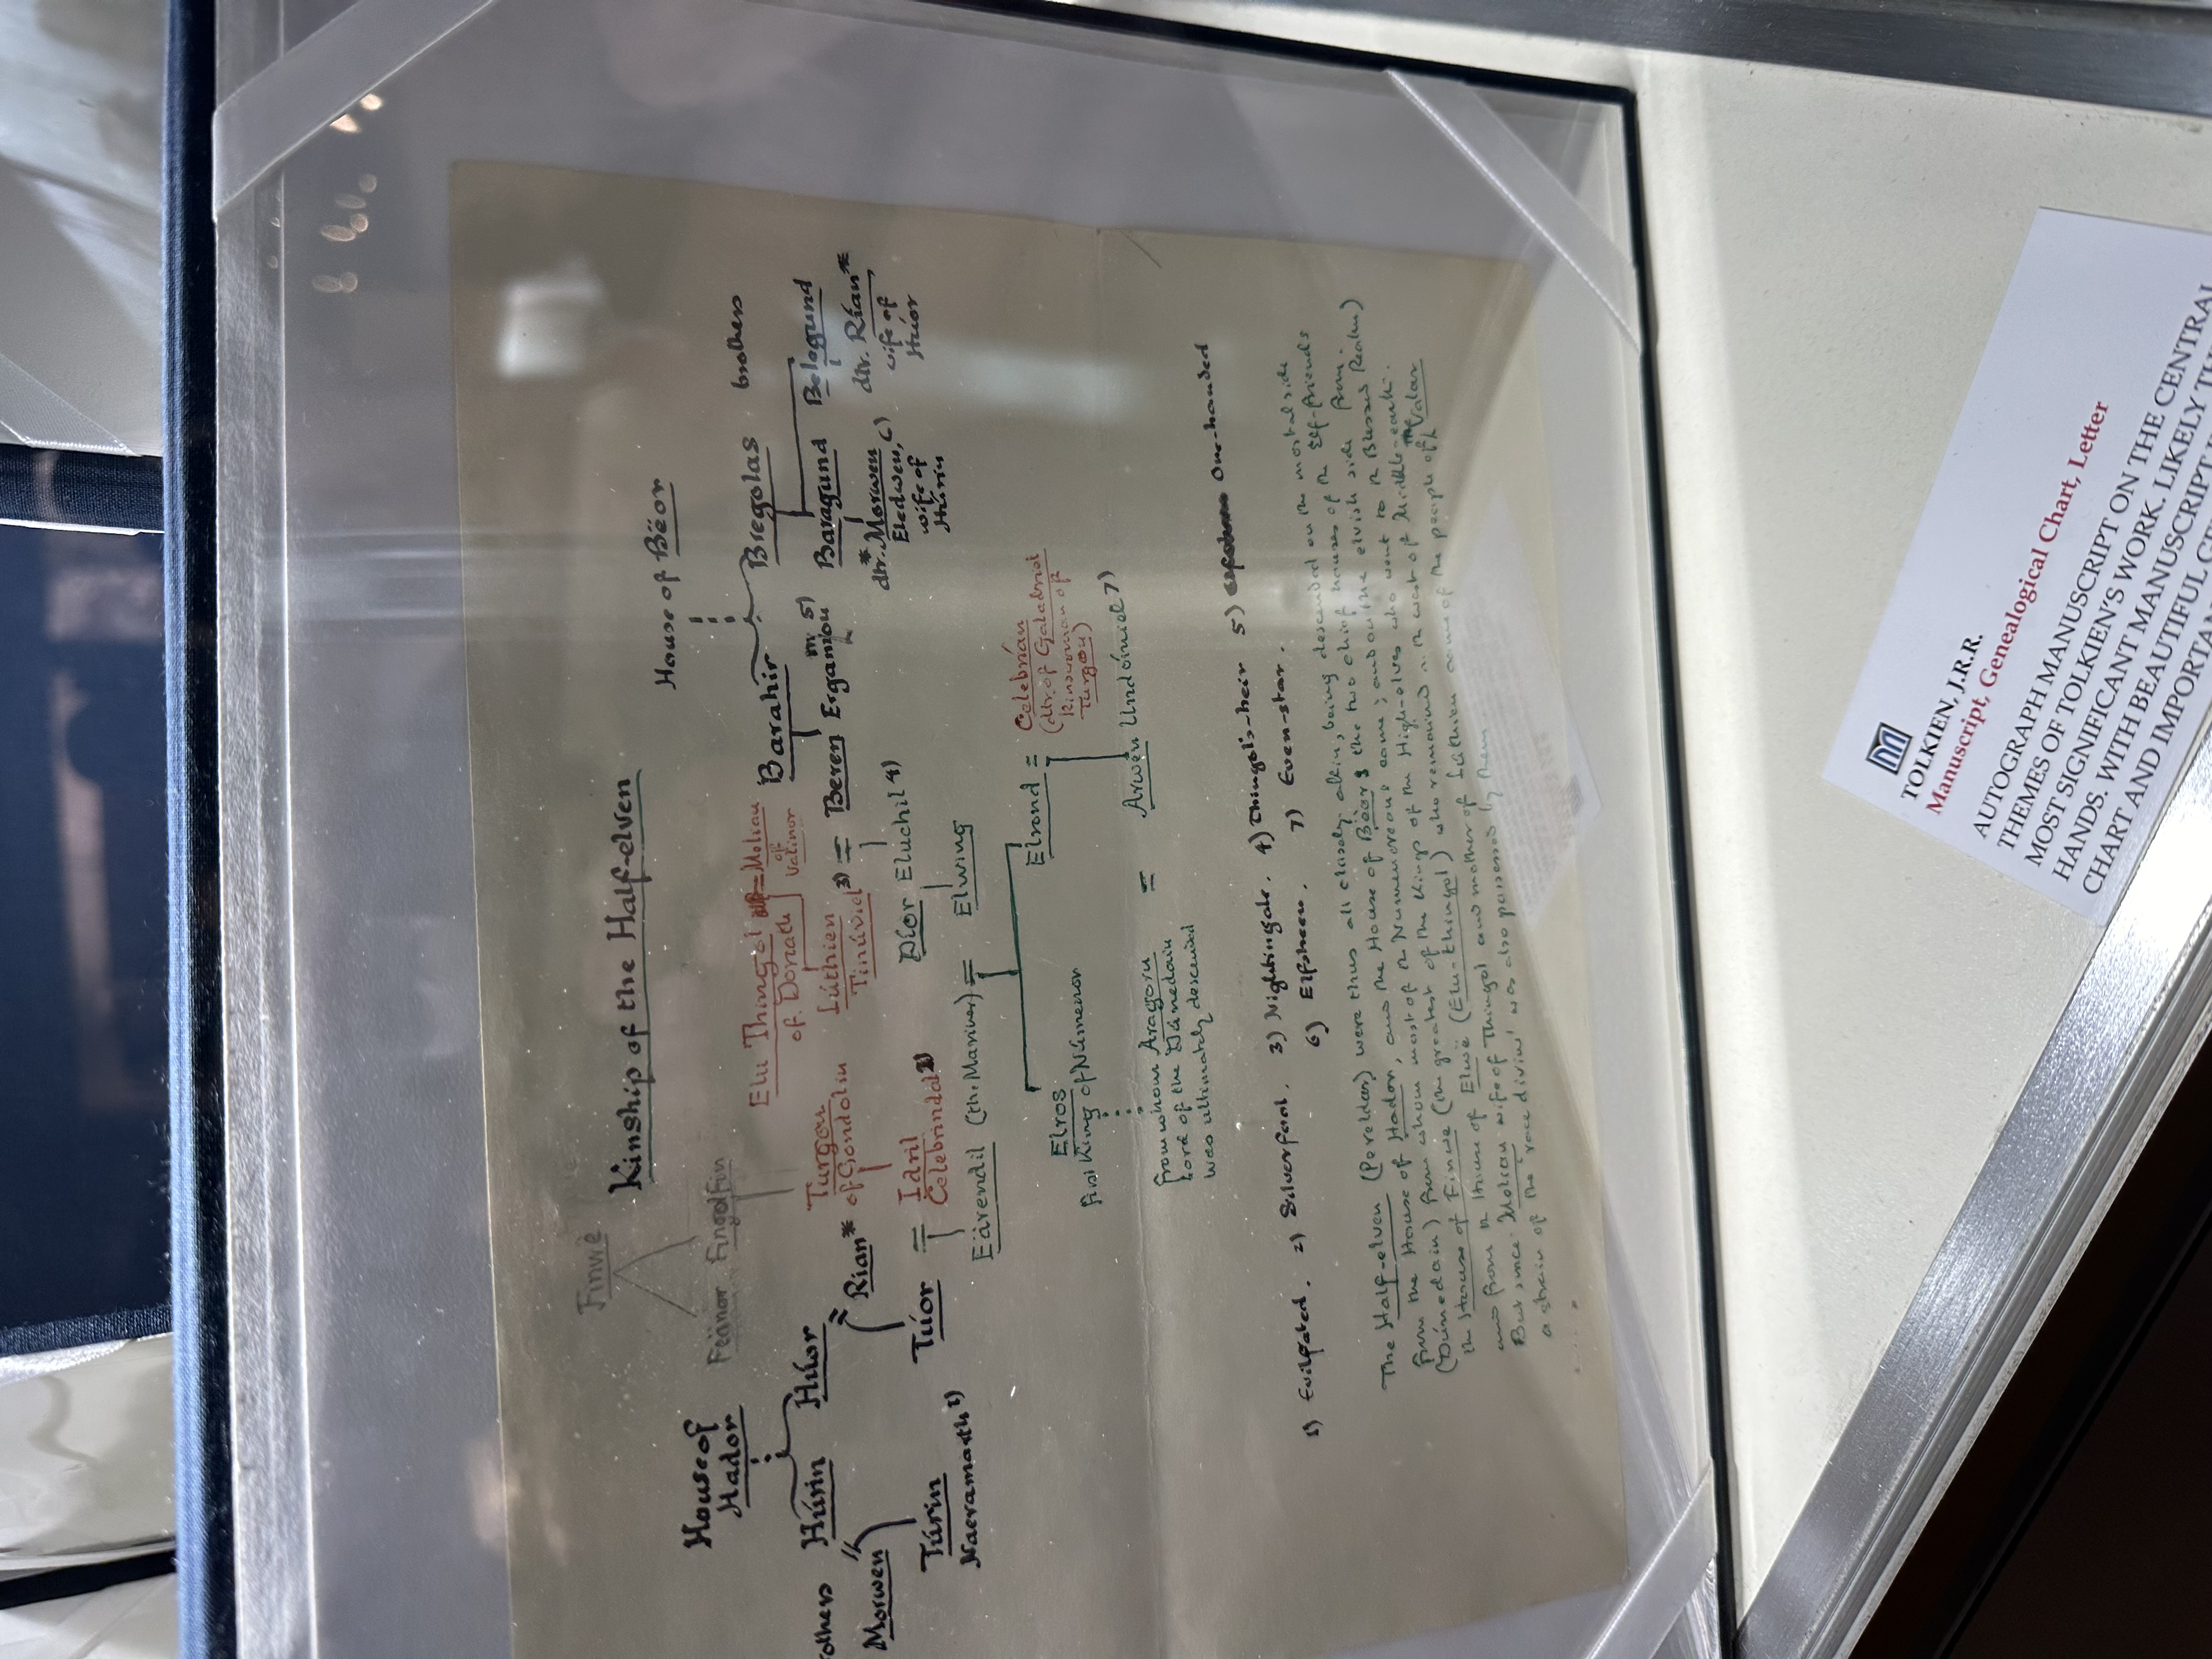 Kinship of the Half-elven
Finwë
Fëanor Fingolfin
House of Hador
House of Bëor
Elu Thingol = Melian
of Doriath of Valinor
Barahir Bregolas brothers
Húrin Húor
Turgon
of Gondolin
Lúthien
Tinúviel 3) = Beren Ergamion 5)
Baragund Belegund
Morwen = Rian*
dtr. *Morwen dtr. Rían*
Eledwen, 6) wife of
wife of Húor
Húrin
Túrin
Naeramarth 1)
Túor = Idril
Celebrindal 2)
Dior Eluchil 4)
Eärendil (the Mariner) = Elwing
Elros
first King of Númenor
Elrond = Celebrían
(dtr. of Galadriel
kinswoman of
Turgon)
from whom Aragorn = Arwen Undómiel 7)
Lord of the Dúnedain
was ultimately descended
1) Evilfated. 2) Silverfoot. 3) Nightingale. 4) Thingol's-heir 5) One-handed
6) Elfsheen. 7) Even-star.
The Half-elven (Pereldar) were thus all closely akin, being descended on the mortal side
from the House of Hador, and the House of Bëor, the two chief houses of the Elf-friends
(Dúnedain) from whom most of the Númenóreans came; and on the elvish side from
the House of Finwë (the greatest of the Kings of the High-elves who went to the Blessed Realm)
and from the House of Elwë (Elu-thingol) who remained in the west of Middle-earth.
But since Melian wife of Thingol and mother of Lúthien came of the people of the Valar
a strain of the 'race divine' was also possessed by them
TOLKIEN, J.R.R.
Manuscript, Genealogical Chart, Letter
AUTOGRAPH MANUSCRIPT ON THE CENTRAL
THEMES OF TOLKIEN'S WORK. LIKELY THE
MOST SIGNIFICANT MANUSCRIPT
HANDS. WITH BEAUTIFUL
CHART AND